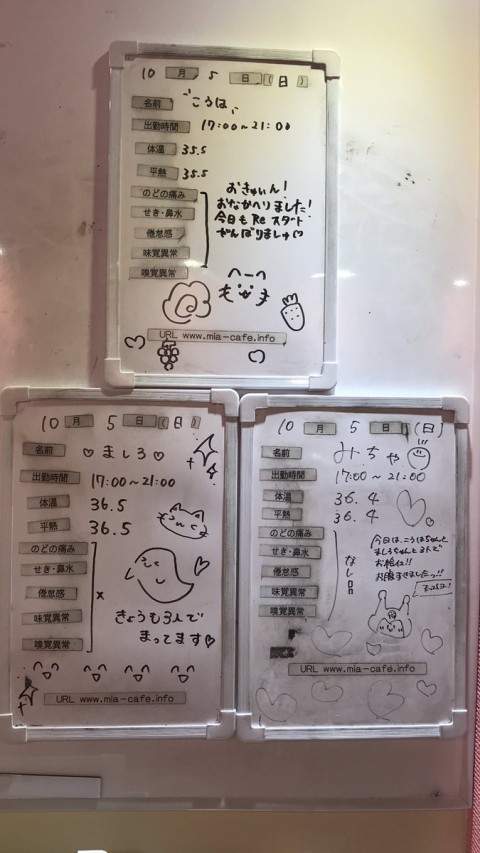 10月5日(日)
名前 こうは
出勤時間 17:00~21:00
体温 35.5
平熱 35.5
のどの痛み
せき・鼻水
倦怠感
味覚異常
嗅覚異常
おきゅいん!
おなかへりました!
今日もReスタート
がんばりましゅ♡
URL www.mia-cafe.info
10月5日(日)
名前 ♡ましろ♡
出勤時間 17:00~21:00
体温 36.5
平熱 36.5
のどの痛み
せき・鼻水
倦怠感
味覚異常
嗅覚異常
×
きょうも3人で
まってます♡
URL www.mia-cafe.info
10月5日(日)
名前 みトちゃ
出勤時間 17:00~21:00
体温 36.4
平熱 36.4
のどの痛み
せき・鼻水
倦怠感
味覚異常
嗅覚異常
なし
今日は、こうはちゃんと
ましろちゃんと3人で
お給仕!!
URL www.mia-cafe.info